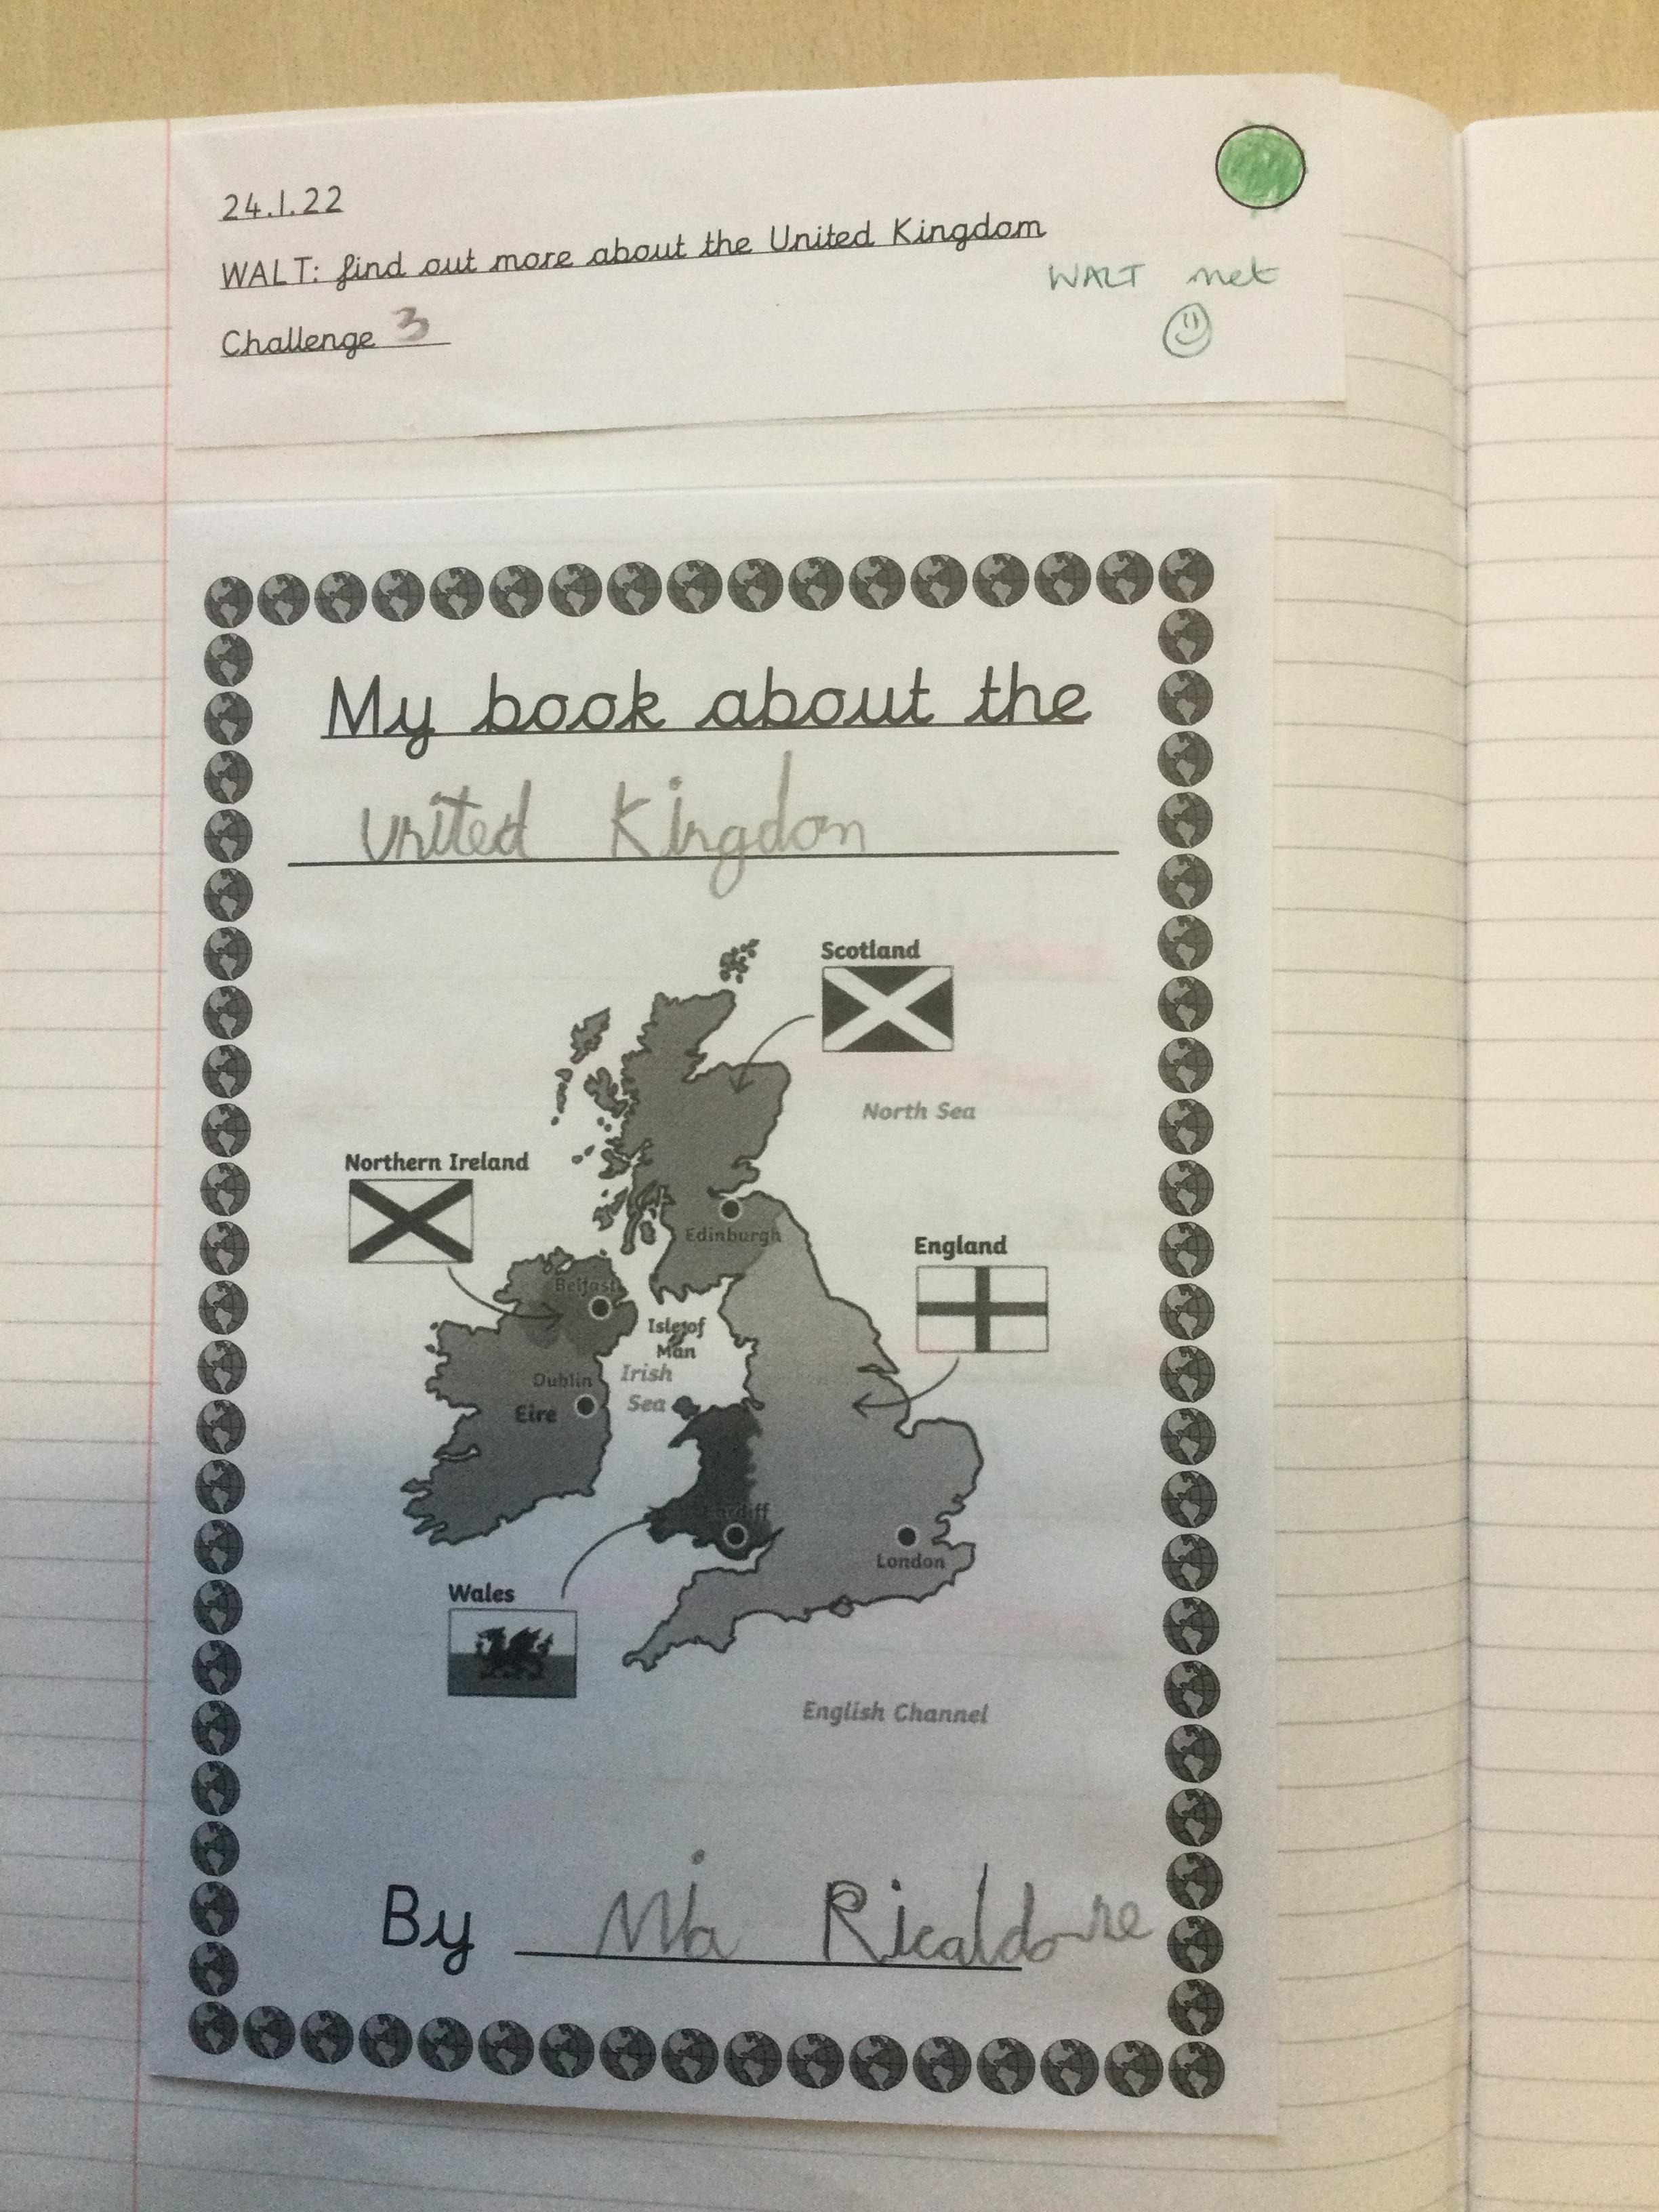 24.1.22
WALT: find out more about the United Kingdom
WALT met
Challenge 3
My book about the
United Kingdom
Scotland
North Sea
Northern Ireland
Edinburgh
England
Belfast
Isle of
Man
Irish
Sea
Dublin
Eire
Cardiff
London
Wales
English Channel
By Mia Ricaldone